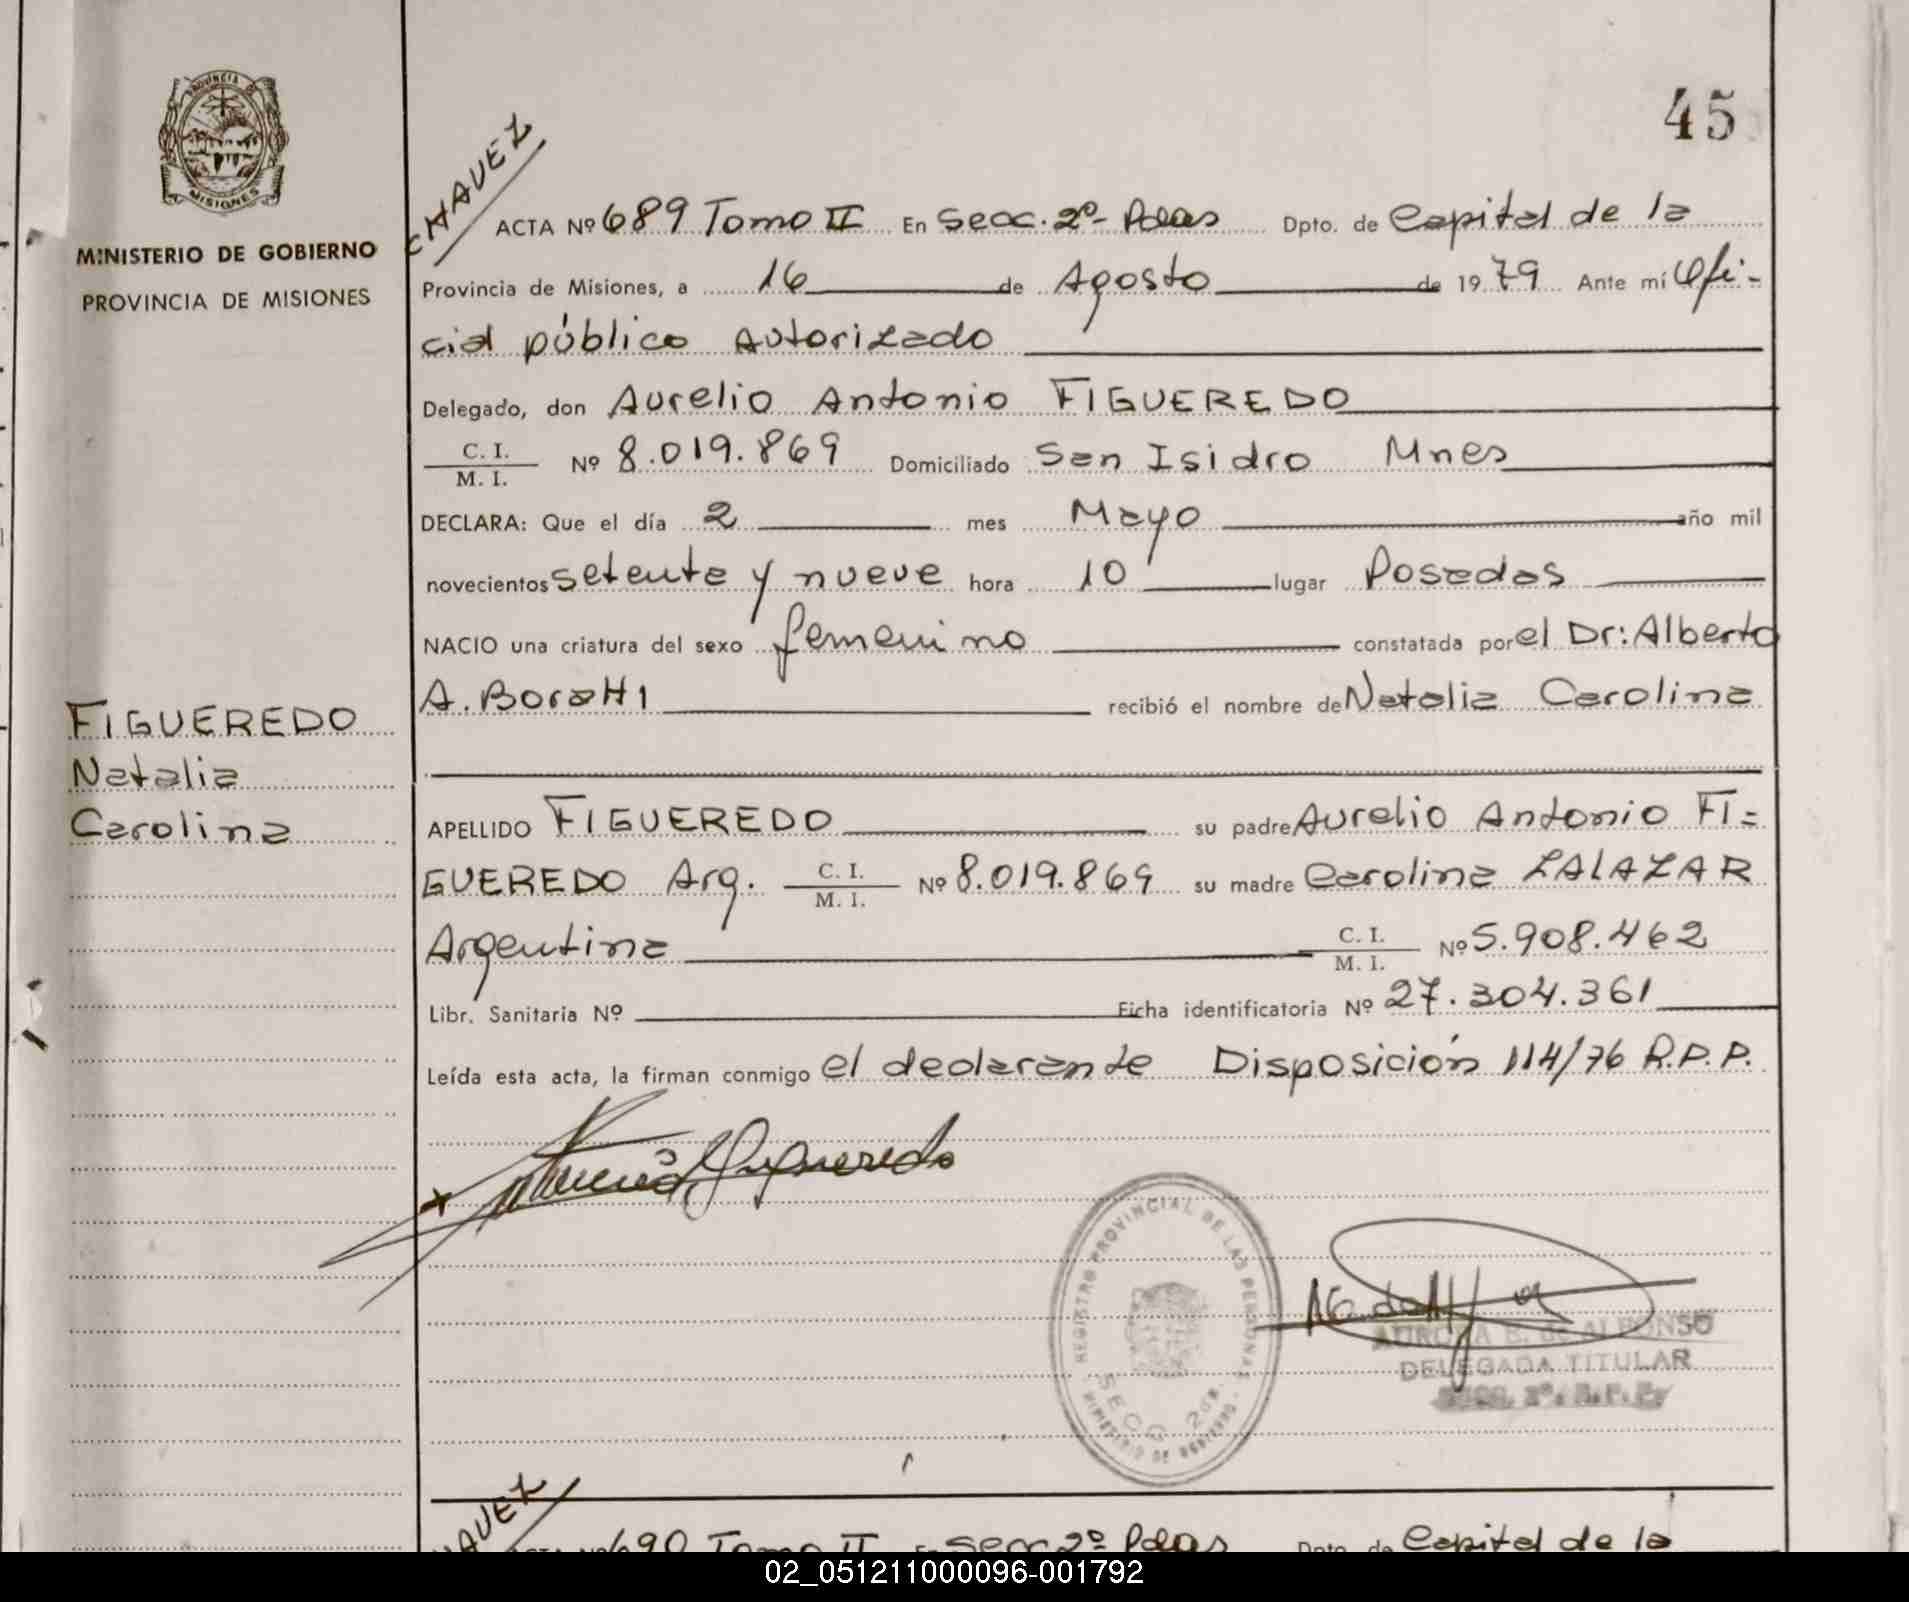 45
PROVINCIA DE
MISIONES
MINISTERIO DE GOBIERNO
PROVINCIA DE MISIONES
CHAVEZ
ACTA Nº 689 Tomo II En Secc. 2º- Pdas Dpto. de Capital de la
Provincia de Misiones, a 16 de Agosto de 1979 Ante mí Ofi-
cial público Autorizado
Delegado, don Aurelio Antonio FIGUEREDO
C. I.
M. I. Nº 8.019.869 Domiciliado San Isidro Mnes
DECLARA: Que el día 2 mes Mayo año mil
novecientos setenta y nueve hora 10 lugar Posadas
NACIO una criatura del sexo femenino constatada por el Dr: Alberto
A. Boratti recibió el nombre de Natalia Carolina
FIGUEREDO
Natalia
Carolina
APELLIDO FIGUEREDO su padre Aurelio Antonio FI=
GUEREDO Arg. C. I. M. I. Nº 8.019.869 su madre Carolina ZALAZAR
Argentina C. I. M. I. Nº 5.908.462
Libr. Sanitaria Nº Ficha identificatoria Nº 27.304.361
Leída esta acta, la firman conmigo el declarante Disposición 114/76 R.P.P.
REGISTRO PROVINCIAL DE LAS PERSONAS
SECC 2da
MINISTERIO DE GOBIERNO
de ALFONSO
DELEGADA TITULAR
CHAVEZ
ACTA Nº 690 Tomo II En Secc 2º Pdas Dpto. de Capital de la
02_051211000096-001792